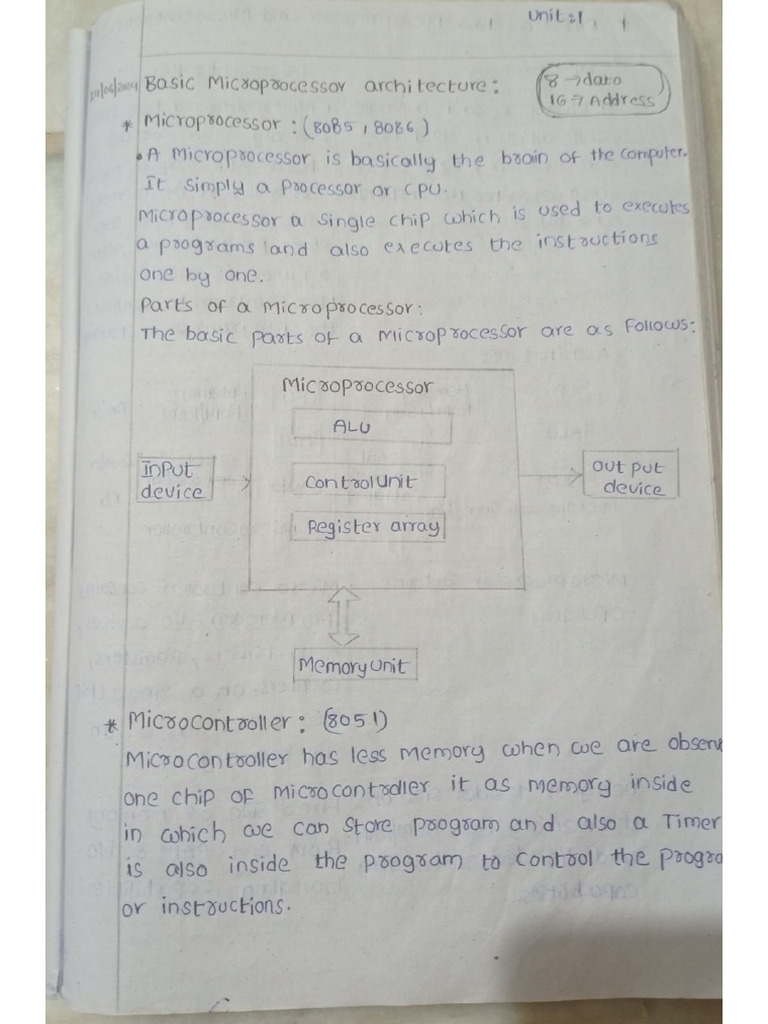 Unit:1
24/06/2024 Basic Microprocessor architecture:
8 → data
16 → Address
* Microprocessor : (8085, 8086)
• A Microprocessor is basically the brain of the computer.
It simply a processor or CPU.
Microprocessor a single chip which is used to executes
a programs and also executes the instructions
one by one.
Parts of a microprocessor:
The basic parts of a microprocessor are as follows:
Microprocessor
ALU
Input
device
control unit
out put
device
Register array
Memory unit
* Microcontroller: (8051)
Microcontroller has less memory when we are
one chip of microcontroller it as memory inside
in which we can store program and also a Timer
is also inside the program to control the
or instructions.